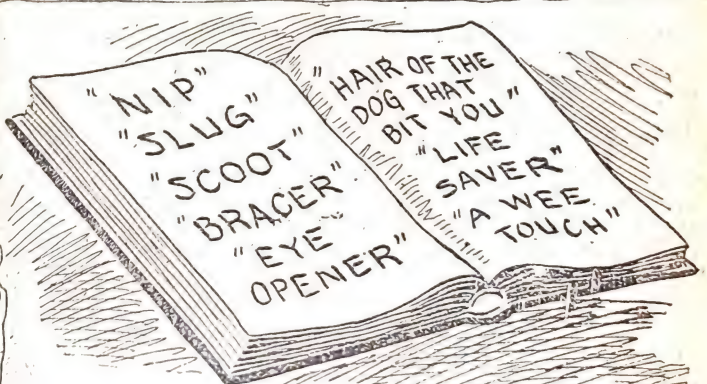 "NIP"
"SLUG"
"SCOOT"
"BRACER"
"EYE
OPENER"
"HAIR OF THE
DOG THAT
BIT YOU"
"LIFE
SAVER"
"A WEE
TOUCH"